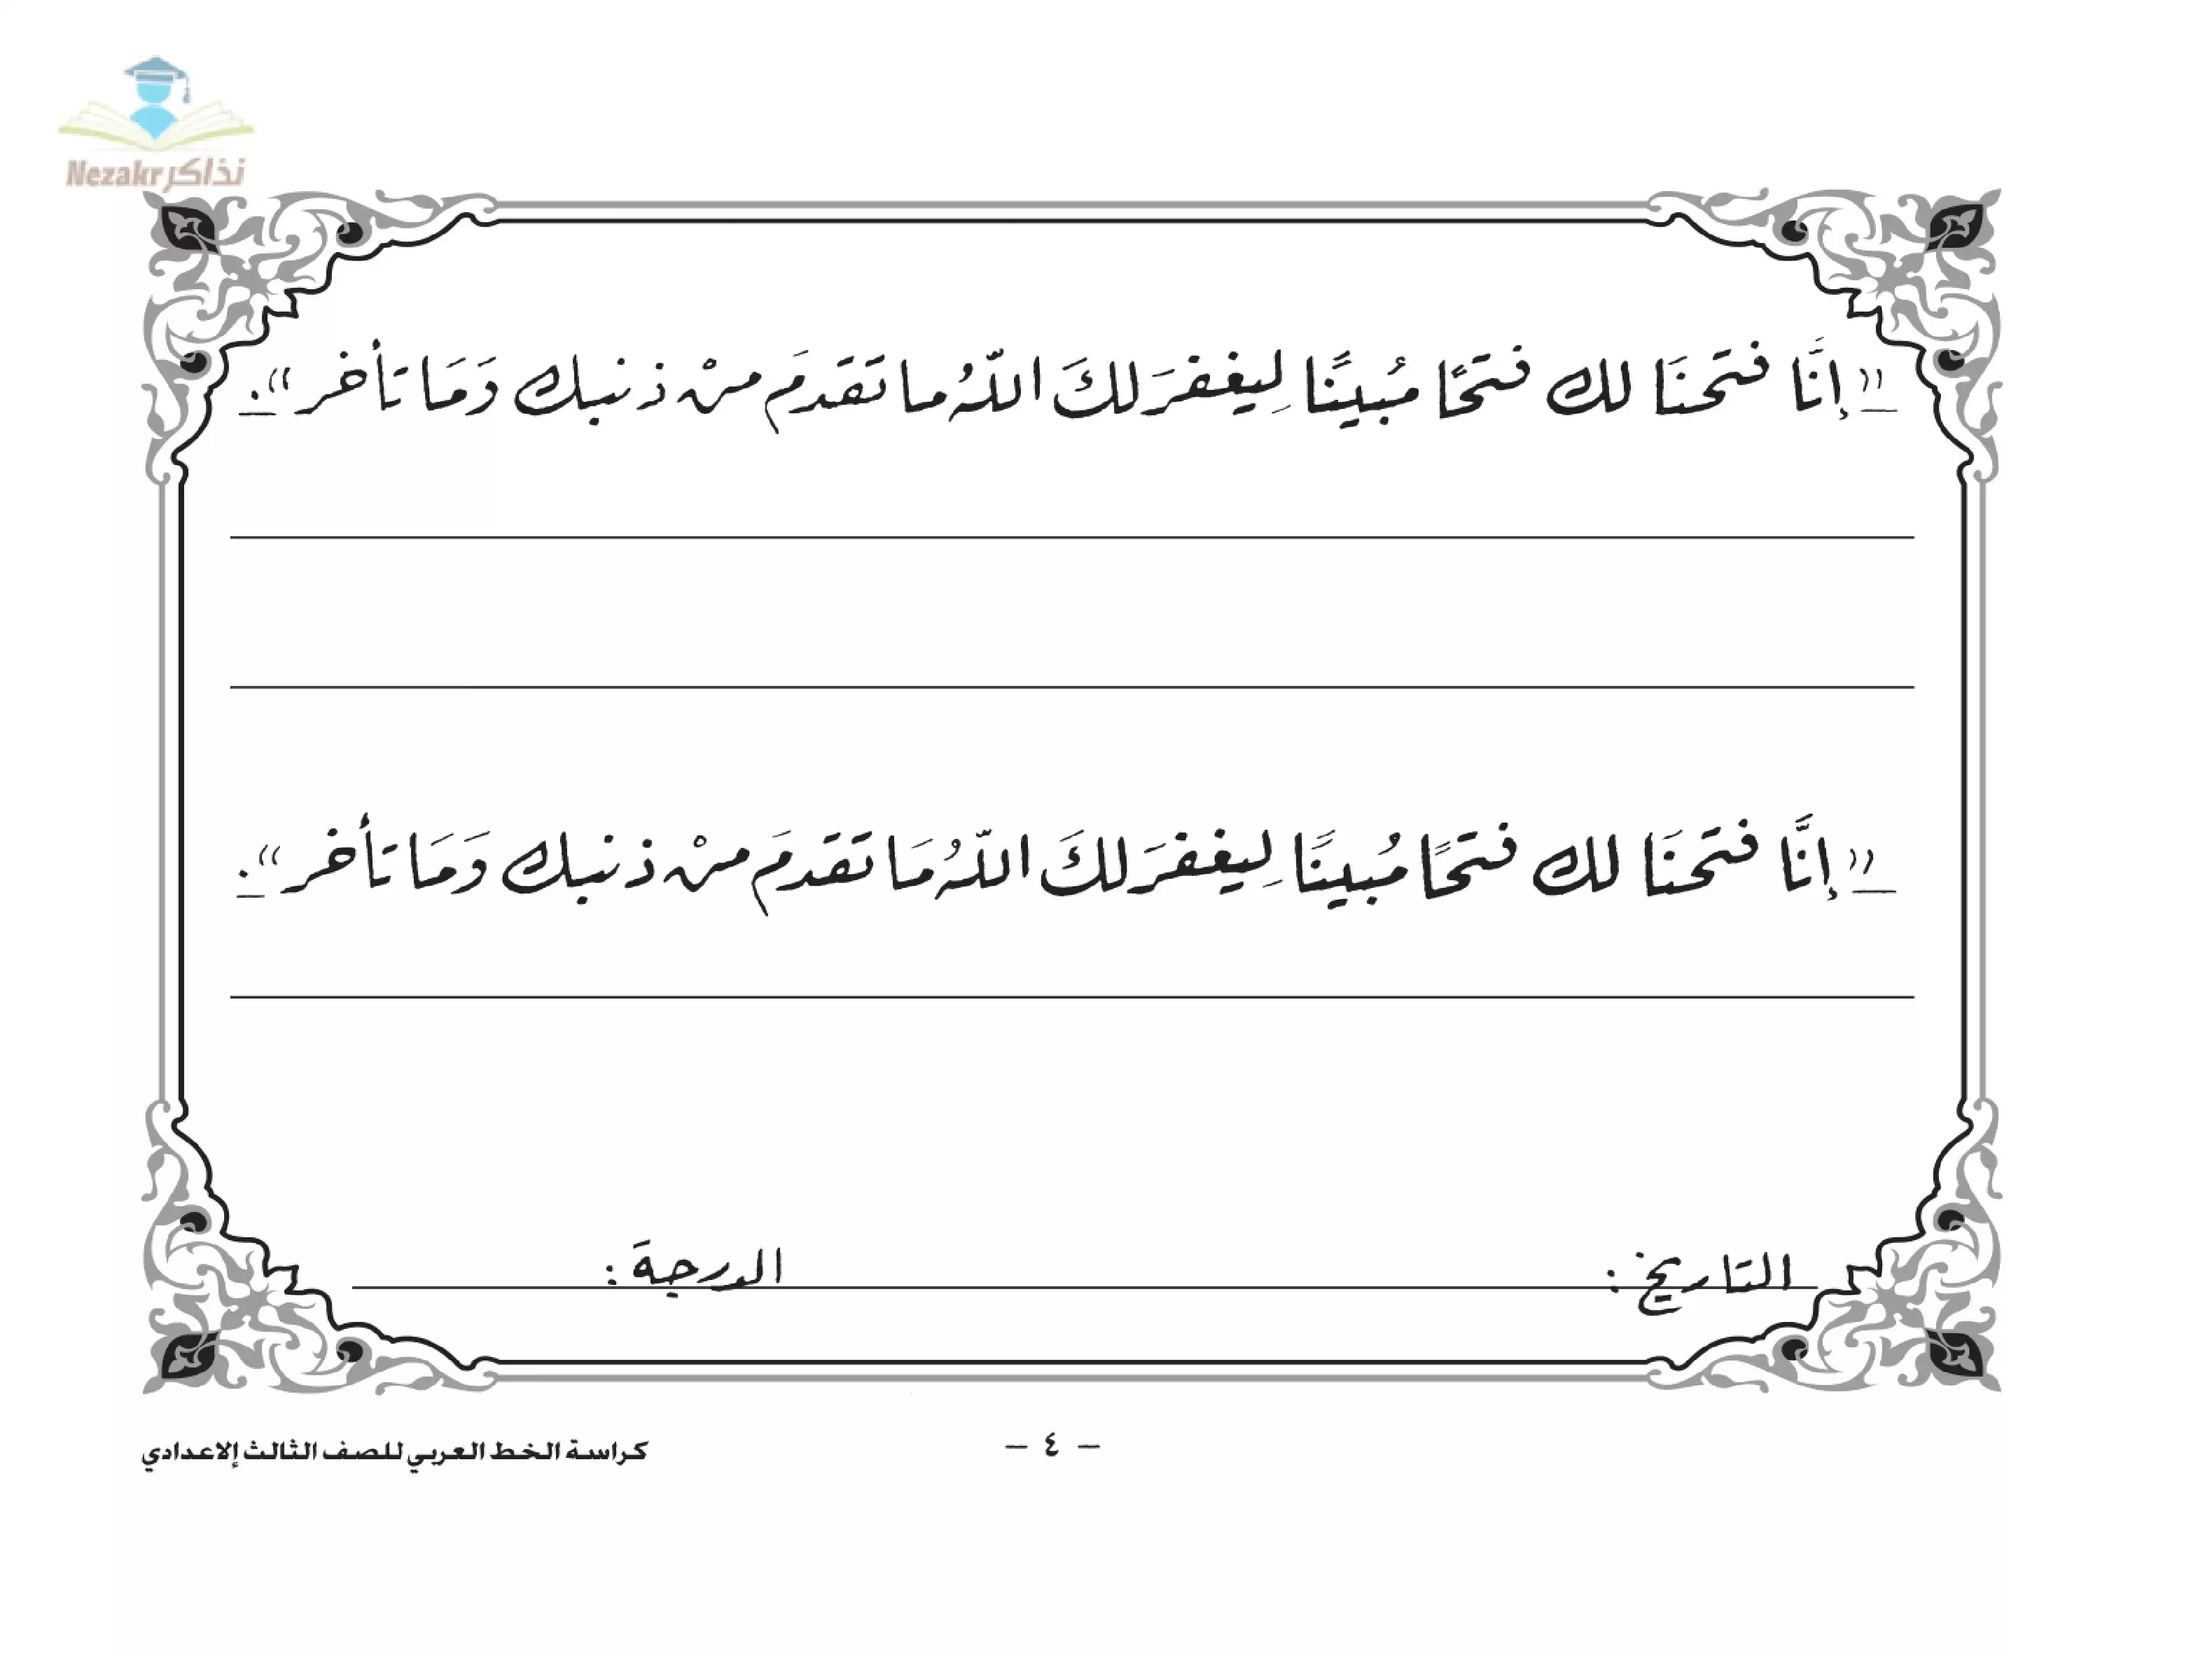 نذاكر Nezakr
« إنَّا فتحنَا لك فتحًا مُبينًا لِيغفرَ لكَ اللّهُ ما تَقَدمَ منْ ذنبك وَمَا تأخر ».
« إنَّا فتحنَا لك فتحًا مُبينًا لِيغفرَ لكَ اللّهُ مَا تَقَدمَ منْ ذنبك وَمَا تأخر ».
التاريخ : الدرجة :
– ٤ –
كراسة الخط العربي للصف الثالث إلاعدادي